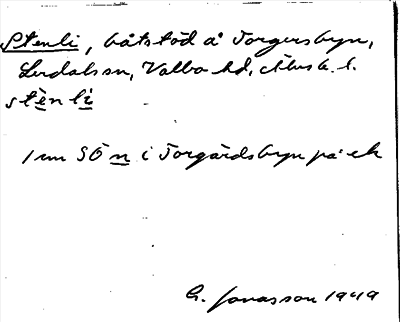 Stenli, båtstad å Torgersbyn,
Lerdals sn, Valbo hd, Älvsb. l.
stènlì
1 km SÖn i Torgårdsbyn på ek
G. Jonasson 1949